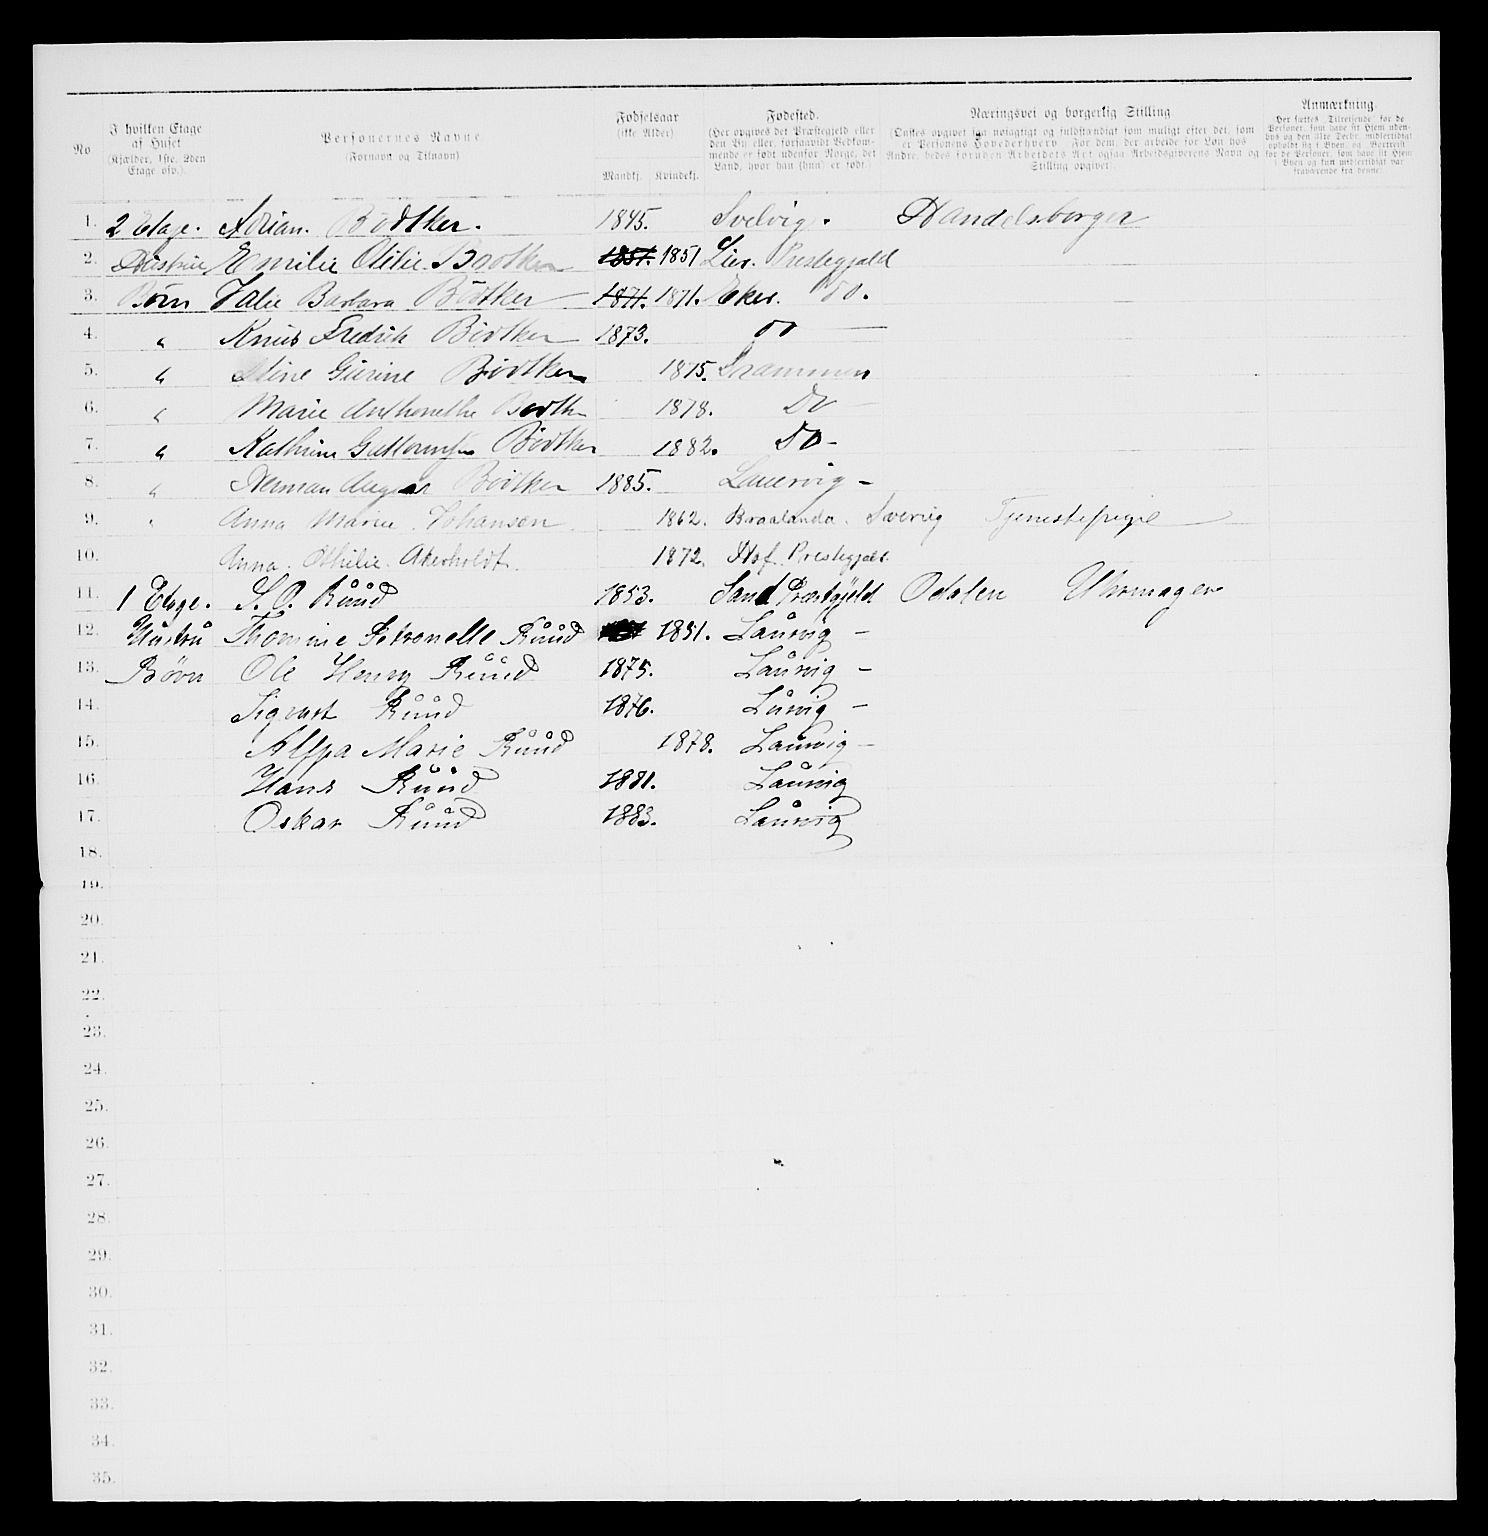 No.
I hvilken Etage af Huset (Kjælder, 1ste, 2den Etage osv.).
Personernes Navne. (Fornavn og Tilnavn)
Fødselsaar (ikke Alder) Mandkj. Kvindekj.
Fødested. (Her opgives det Præstegjeld eller den By eller, forsaavidt Vedkommende er født udenfor Norge, det Land, hvor han (hun) er født.)
Næringsvei og borgerlig Stilling (Ønskes opgivet saa nøiagtigt og fuldstændigt som muligt efter det, som er Personens Hovederhverv. For dem, der arbeide for Løn hos Andre, bedes foruden Arbeidets Art ogsaa Arbeidsgiverens Navn og Stilling opgivet.)
Anmærkning. Her sættes „Tilreisende“ for de Personer, som have sit Hjem udenbys og den 31te Decbr. midlertidigt opholdt sig i Byen, og „Bortreist“ for de Personer, som have sit Hjem i Byen og kun midlertidigt var fraværende fra denne.
1. 2 Etage. Adrian. Bødtker. 1845. Svelvig. Handelsborger
2. Emilie Otilie Bødtker 1851. 1851 Lier. Prestegjeld
3. Børn Valie Barbara Bödtker 1871. 1871. Eker. do.
4. " Knud Fredrik Bödtker 1873. do
5. " Stine Gurine Bödtker 1875. Drammen
6. " Marie Anthonette Bödtk 1878. Do
7. " Kathrine Bödtker 1882. Do -
8. " Herman August Bödtker 1885. Laurvig -
9. " Anna Marie. Johansen. 1862. Sverrig Tjenestepige
10. Anna. Othilie. Akerholdt. 1872. Hof. Prestegjeld
11. 1 Etage. S. O. Ruud 1853. Sand Præstgjeld Odalen Uhrmager
12. Hustru Thomine Petronelle Ruud 1851. Laurvig -
13. Børn Ole Henry Ruud 1875. Laurvig -
14. Sigvart Ruud 1876. Lurvig -
15. Marie Ruud 1878. Laurvig -
16. Hans Ruud 1881. Laurvig
17. Oskar Ruud 1883. Laurvig
18.
19.
20.
21.
22.
23.
24.
25.
26.
27.
28.
29.
30.
31.
32.
33.
34.
35.